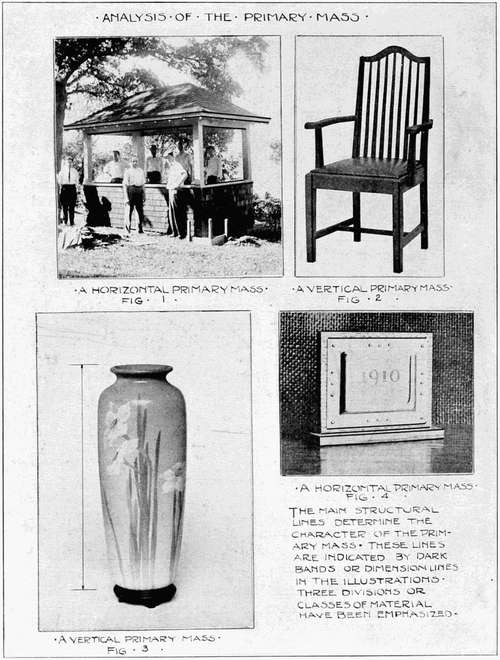 ANALYSIS · OF · THE · PRIMARY · MASS ·
· A HORIZONTAL PRIMARY MASS ·
FIG · 1 ·
· A VERTICAL PRIMARY MASS ·
FIG · 2 ·
1910
· A VERTICAL PRIMARY MASS ·
FIG · 3
· A HORIZONTAL PRIMARY MASS ·
FIG · 4
THE MAIN STRUCTURAL
LINES DETERMINE THE
CHARACTER OF THE PRIM-
ARY MASS · THESE LINES
ARE INDICATED BY DARK
BANDS OR DIMENSION LINES
IN THE ILLUSTRATIONS ·
THREE DIVISIONS OR
CLASSES OF MATERIAL
HAVE BEEN EMPHASIZED ·